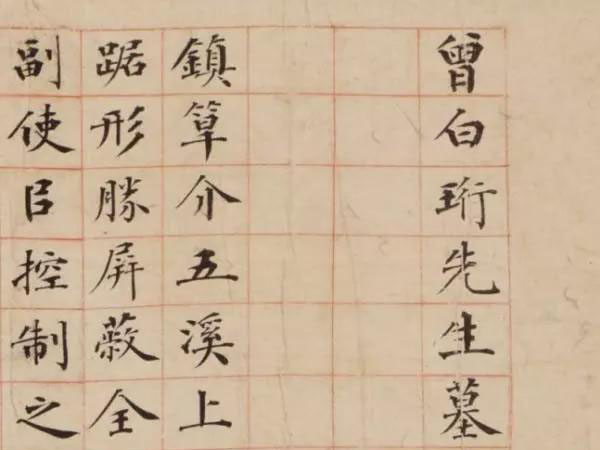 曾白珩先生墓
鎮筸介五溪上
踞形勝屏蔽全
副使㠯控制之